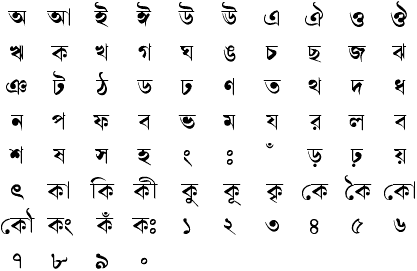 অ আ ই ঈ উ ঊ এ ঐ ও ঔ
ঋ ক খ গ ঘ ঙ চ ছ জ ঝ
ঞ ট ঠ ড ঢ ণ ত থ দ ধ
ন প ফ ব ভ ম য র ল ব
শ ষ স হ ং ঃ ঁ ড় ঢ় য়
ৎ কা কি কী কু কূ কৃ কে কৈ কো
কৌ কং কঁ কঃ ১ ২ ৩ ৪ ৫ ৬
৭ ৮ ৯ ০